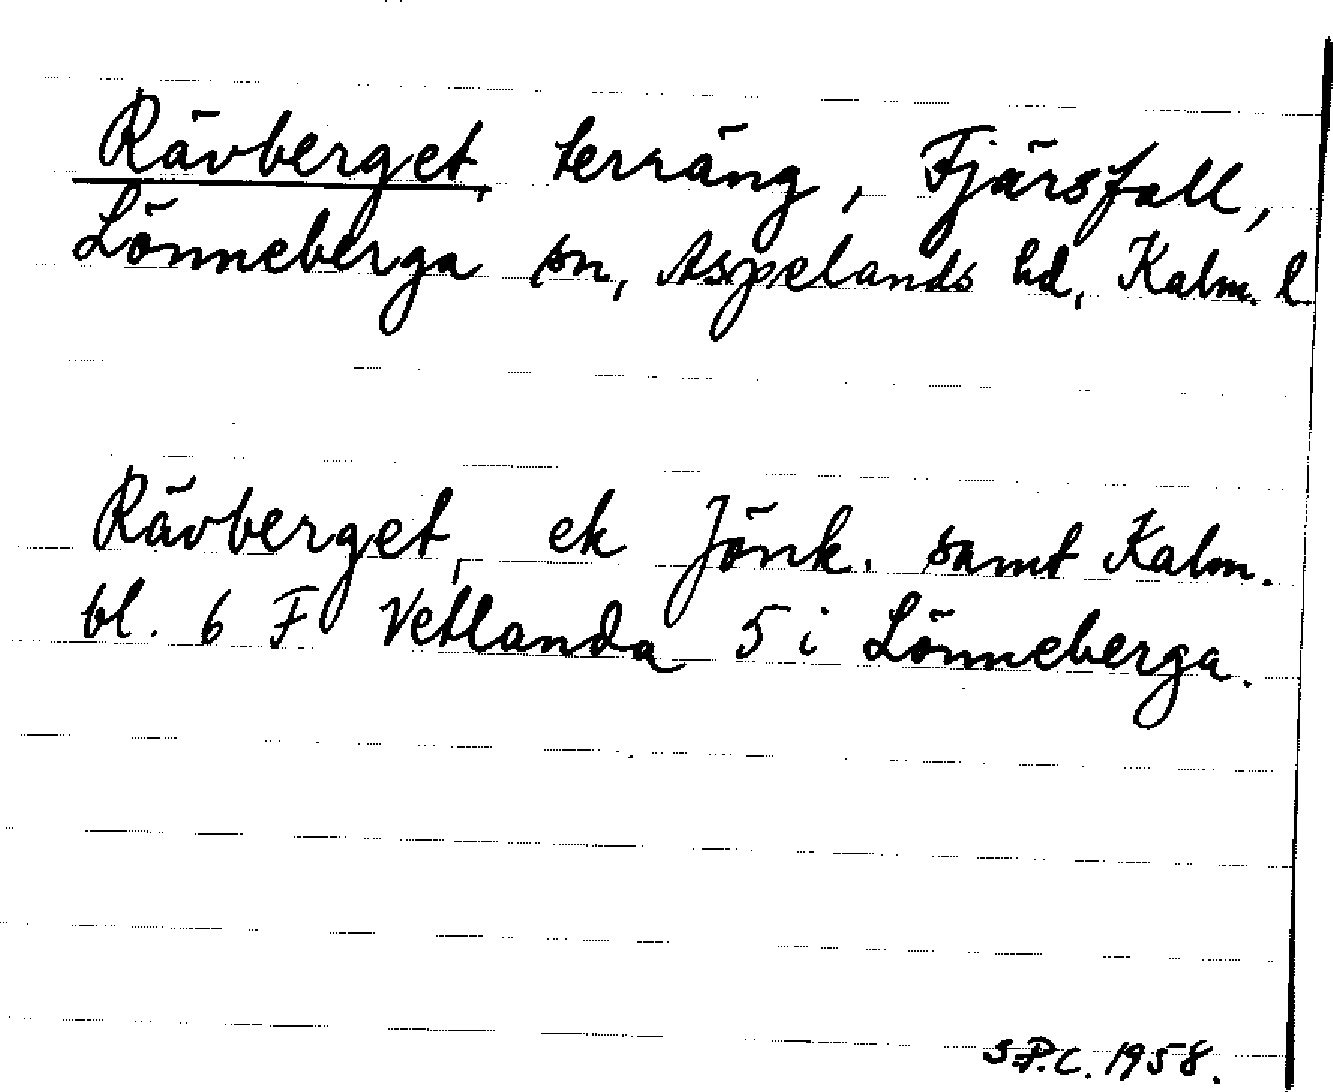 Rävberget, terräng, Fjärsfall,
Lönneberga sn, Aspelands hd, Kalm. l
Rävberget, ek Jönk. samt Kalm.
bl. 6 F Vetlanda 5 i Lönneberga.
S.P.C. 1958.